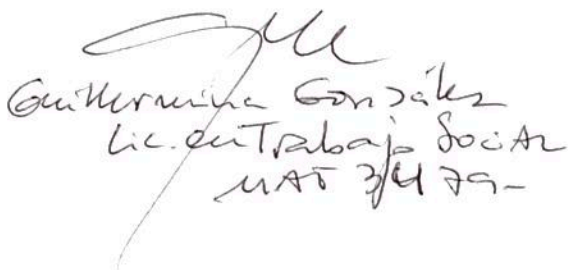 Guillermina González
Lic. en Trabajo Social
MAT